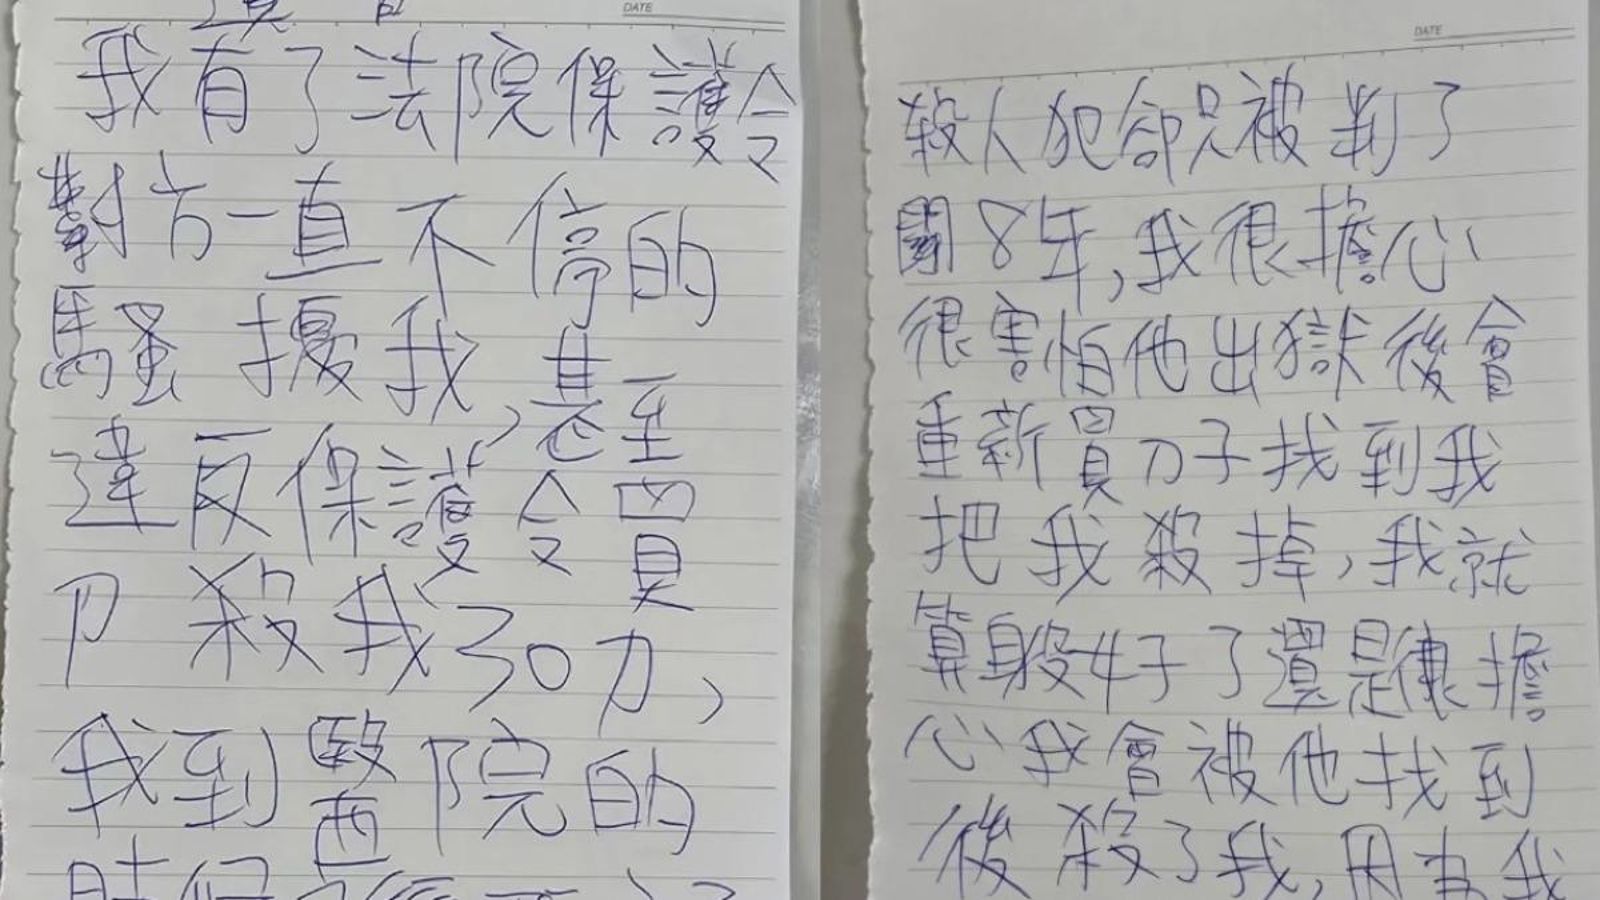 DATE
我有了法院保護令
對方一直不停的
騷擾我,甚至
違反保護令買
殺我30刀,
我到醫院的
時候
DATE
殺人犯卻只被判了
關8年,我很擔心
很害怕他出獄後會
重新買刀子找到我
把我殺掉,我就
算身體好了還是很擔
心我會被他找到
後殺了我,因為我